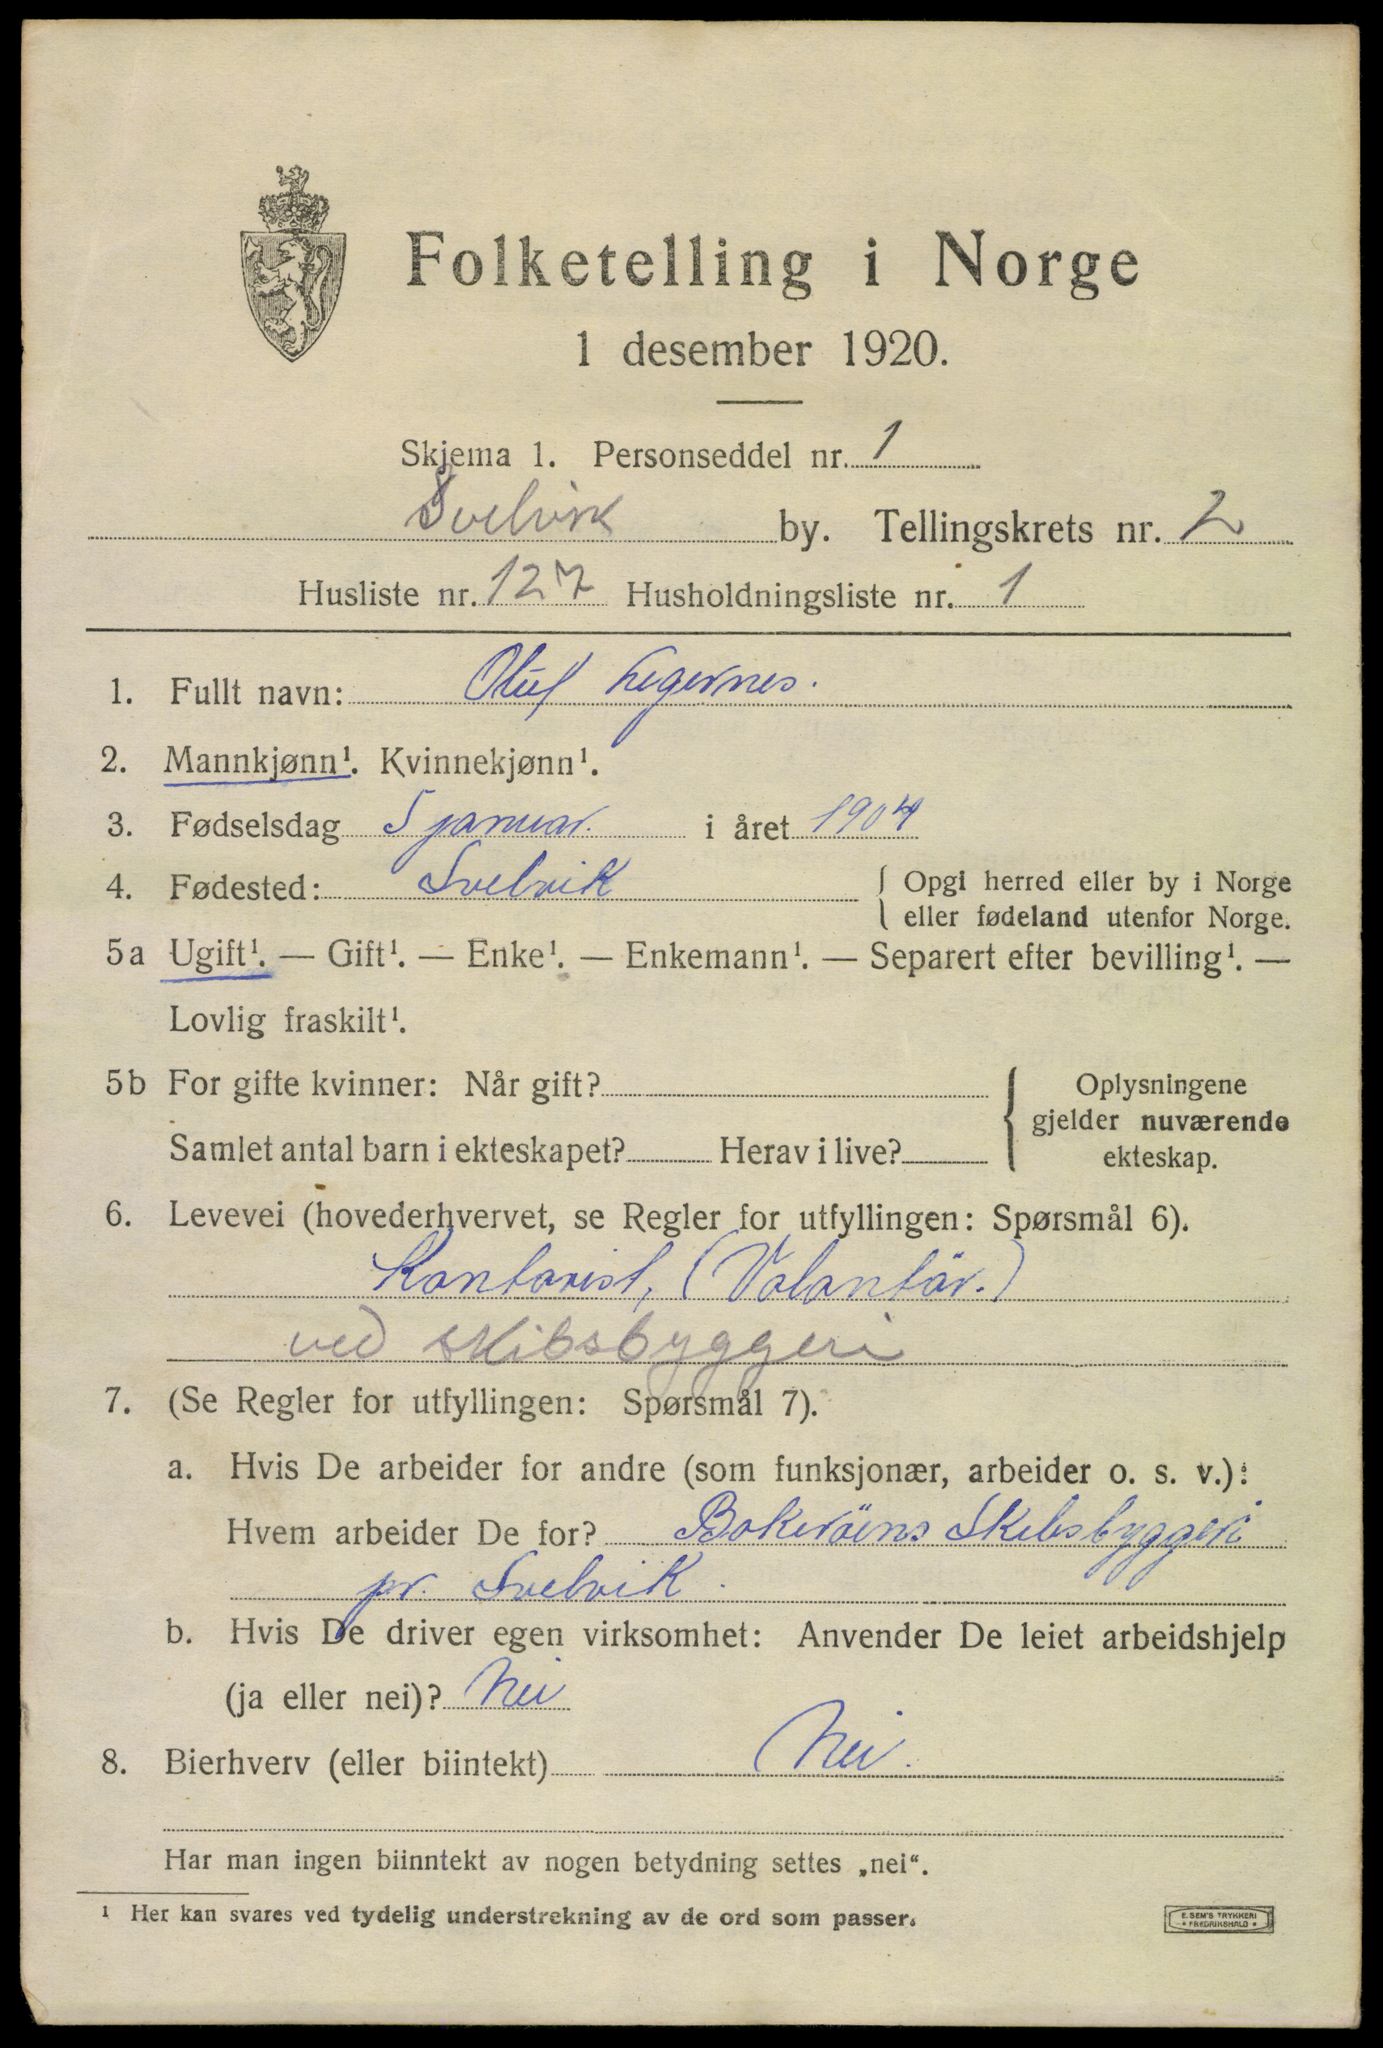 Folketelling i Norge
1 desember 1920.
Skjema 1. Personseddel nr. 1
Svelvik by. Tellingskrets nr. 2
Husliste nr. 127 Husholdningsliste nr. 1
1. Fullt navn: Oluf Legernes.
2. Mannkjønn¹. Kvinnekjønn¹.
3. Fødselsdag 5 januar. i året 1904
4. Fødested: Svelvik { Opgi herred eller by i Norge
eller fødeland utenfor Norge.
5a Ugift¹. — Gift¹. — Enke¹. — Enkemann¹. — Separert efter bevilling¹. —
Lovlig fraskilt¹.
5b For gifte kvinner: Når gift? { Oplysningene
gjelder nuværende
Samlet antal barn i ekteskapet? Herav i live? ekteskap.
6. Levevei (hovederhvervet, se Regler for utfyllingen: Spørsmål 6).
Kontorist, (Volontör.)
ved skibsbyggeri
7. (Se Regler for utfyllingen: Spørsmål 7).
a. Hvis De arbeider for andre (som funksjonær, arbeider o. s. v.):
Hvem arbeider De for? Bokeröens Skibsbyggeri
pr. Svelvik.
b. Hvis De driver egen virksomhet: Anvender De leiet arbeidshjelp
(ja eller nei)? Nei
8. Bierhverv (eller biintekt) Nei.
Har man ingen biinntekt av nogen betydning settes „nei“.
¹ Her kan svares ved tydelig understrekning av de ord som passer.
E. SEM'S TRYKKERI
FREDRIKSHALD